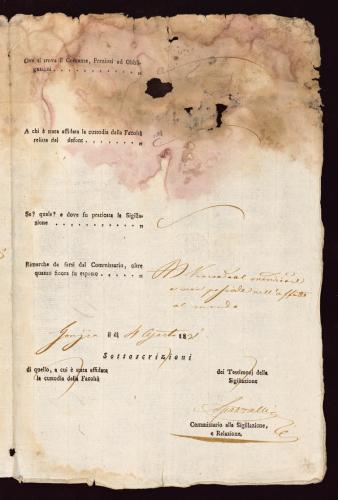 Ove si trova il Contante, Preziosi ed Obbli-
gazioni . . . . . . . . . . . „
A chi è stata affidata la custodia della Facoltà
relitta dal defont. . . . . . . . . „
Se? quale? e dove fu praticata la Sigilla-
zione . . . . . . . . . . . . „
Rimarche da farsi dal Commissario, oltre
quanto finora fu esposto . . . . . . „
al mondo
il di 4 Agosto 182
Sottoscrizioni
di quello, a cui è stata affidata
la custodia della Facoltà
dei Testimonj della
Sigillazione
Commissario alla Sigillazione,
e Relazione.